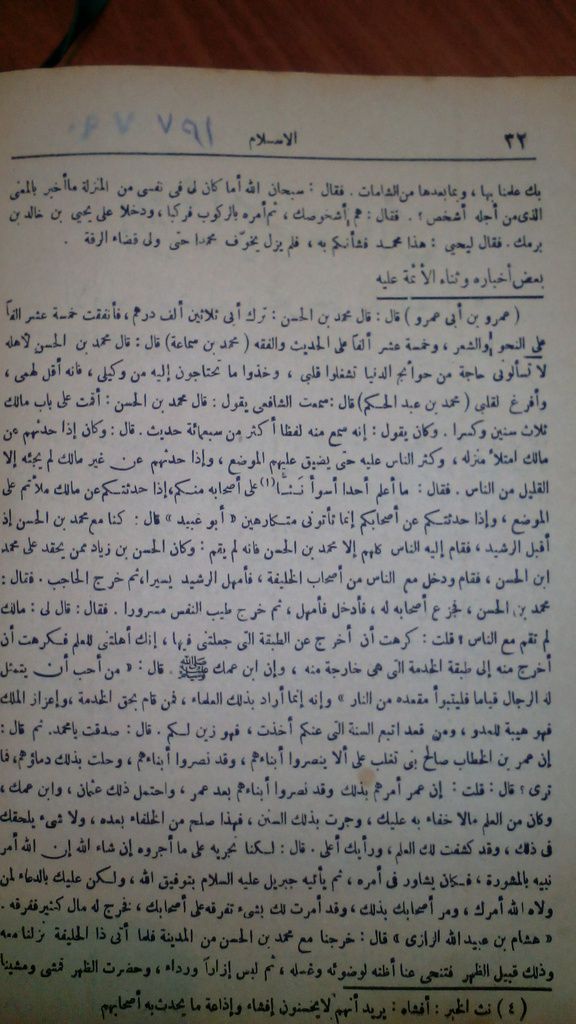 ٣٢
الاسلام
٧٩١
بك علمنا بها، وبما بعدها من الشامات. فقال: سبحان الله أما كان لى فى نفسى من المنزلة ما أخبر بالمعنى
الذى من أجله أشخص؟. فقال: هم أشخصوك، ثم أمره بالركوب فركبا، ودخلا على يحيى بن خالد بن
برمك. فقال ليحيى: هذا محمد فشأنكم به، فلم يزل يخوّف محمدا حتى ولى قضاء الرقة.
بعض أخباره وثناء الأئمة عليه
(عمرو بن أبى عمرو) قال: قال محمد بن الحسن: ترك أبى ثلاثين ألف درهم، فأنفقت خمسة عشر الفاً
على النحو والشعر، وخمسة عشر ألفاً على الحديث والفقه (محمد بن سماعة) قال: قال محمد بن الحسن لاهله
لا تسألونى حاجة من حوائج الدنيا تشغلوا قلبى، وخذوا ما تحتاجون إليه من وكيلى، فانه أقل لهمى،
وأفرغ لقلبى (محمد بن عبد الحكم) قال: سمعت الشافعى يقول: قال محمد بن الحسن: أقمت على باب مالك
ثلاث سنين وكسرا. وكان يقول: إنه سمع منه لفظا أكثر من سبعمائة حديث. قال: وكان إذا حدثهم عن
مالك امتلأ منزله، وكثر الناس عليه حتى يضيق عليهم الموضع، وإذا حدثهم عن غير مالك لم يجئه إلا
القليل من الناس. فقال: ما أعلم أحدا أسوأ نَثًّا(١) على أصحابه منكم، إذا حدثتكم عن مالك ملأتم على
الموضع، وإذا حدثتكم عن أصحابكم إنما تأتونى متكارهين «أبو عبيد» قال: كنا مع محمد بن الحسن إذ
أقبل الرشيد، فقام إليه الناس كلهم إلا محمد بن الحسن فانه لم يقم: وكان الحسن بن زياد ممن يحقد على محمد
ابن الحسن، فقام ودخل مع الناس من أصحاب الخليفة، فأمهل الرشيد يسيرا، ثم خرج الحاجب. فقال:
محمد بن الحسن، فجزع أصحابه له، فأدخل فأمهل، ثم خرج طيب النفس مسرورا. فقال: قال لى: مالك
لم تقم مع الناس؟ قلت: كرهت أن أخرج عن الطبقة التى جعلتنى فيها، إنك أهلتنى للعلم فكرهت أن
أخرج منه إلى طبقة الخدمة التى هى خارجة منه، وإن ابن عمك ﷺ قال: «من أحب أن يتمثل
له الرجال قياما فليتبوأ مقعده من النار» وإنه إنما أراد بذلك العلماء، فمن قام بحق الخدمة، وإعزاز الملك
فهو هيبة للعدو، ومن قعد اتبع السنة التى عنكم أخذت، فهو زين لكم. قال: صدقت يامحمد. ثم قال:
إن عمر بن الخطاب صالح بنى تغلب على ألا ينصروا أبناءهم، وقد نصروا أبناءهم، وحلت بذلك دماؤهم، فما
ترى؟ قال: قلت: إن عمر أمرهم بذلك وقد نصروا أبناءهم بعد عمر، واحتمل ذلك عثمان، وابن عمك،
وكان من العلم مالا خفاء به عليك، وجرت بذلك السنن، فهذا صلح من الخلفاء بعده، ولا شىء يلحقك
فى ذلك، وقد كشفت لك العلم، ورأيك أعلى. قال: لكنا نجريه على ما أجروه إن شاء الله إن الله أمر
نبيه بالمشورة، فكان يشاور فى أمره، ثم يأتيه جبريل عليه السلام بتوفيق الله، ولكن عليك بالدعاء لمن
ولاه الله أمرك، ومر أصحابك بذلك، وقد أمرت لك بشىء تفرقه على أصحابك، فخرج له مال كثير ففرقه.
«هشام بن عبيد الله الرازى» قال: خرجنا مع محمد بن الحسن من المدينة فلما أتى ذا الحليفة نزلنا معه
وذلك قبيل الظهر فتنحى عنا أظنه لوضوئه وغسله، ثم لبس إزاراً ورداء، وحضرت الظهر فمشى ومشينا
(٤) نث الخبر: أفشاه: يريد أنهم لايحسنون إفشاء وإذاعة ما يحدث به أصحابهم